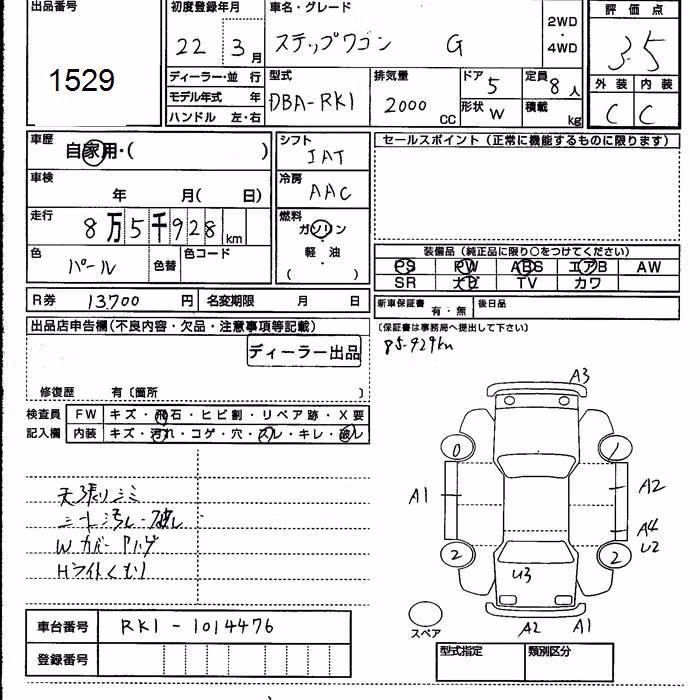 出品番号
1529
初度登録年月
22 3月
車名・グレード
ステップワゴン G
2WD
・
4WD
評価点
3.5
外装 内装
C C
ディーラー・並 行
モデル年式 年
ハンドル 左・右
型式
DBA-RK1
排気量
2000 cc
ドア 5
形状 W
定員 8人
積載 kg
車歴
自家用・( )
車検
年 月( 日)
走行
8万5千928km
色
パール
色替
色コード
シフト
IAT
冷房
AAC
燃料
ガソリン
・
軽 油
・
( )
セールスポイント(正常に機能するものに限ります)
装備品(純正品に限り○をつけてください)
PS PW ABS エアB AW
SR ナビ TV カワ
R券 13700円 名変期限 月 日
新車保証書 有・無 後日品
〔保証書は事務局へ提出して下さい〕
85-929km
出品店申告欄(不良内容・欠品・注意事項等記載)
ディーラー出品
修復歴 有〔箇所 〕
検査員
記入欄
FW キズ・飛石・ヒビ割・リペア跡・X要
内装 キズ・汚れ・コゲ・穴・スレ・キレ・破レ
天張りシミ
シート汚レ・破レ
Wカバーハゲ
Hライトくもり
A3
0 1
A1 A2
A4
U2
2 2
U3
A2 A1
スペア
車台番号 RK1-1014476
登録番号
型式指定 類別区分